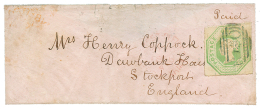 Paid
Mrs Henry Coppock.
Dawbank House
Stockport
England.